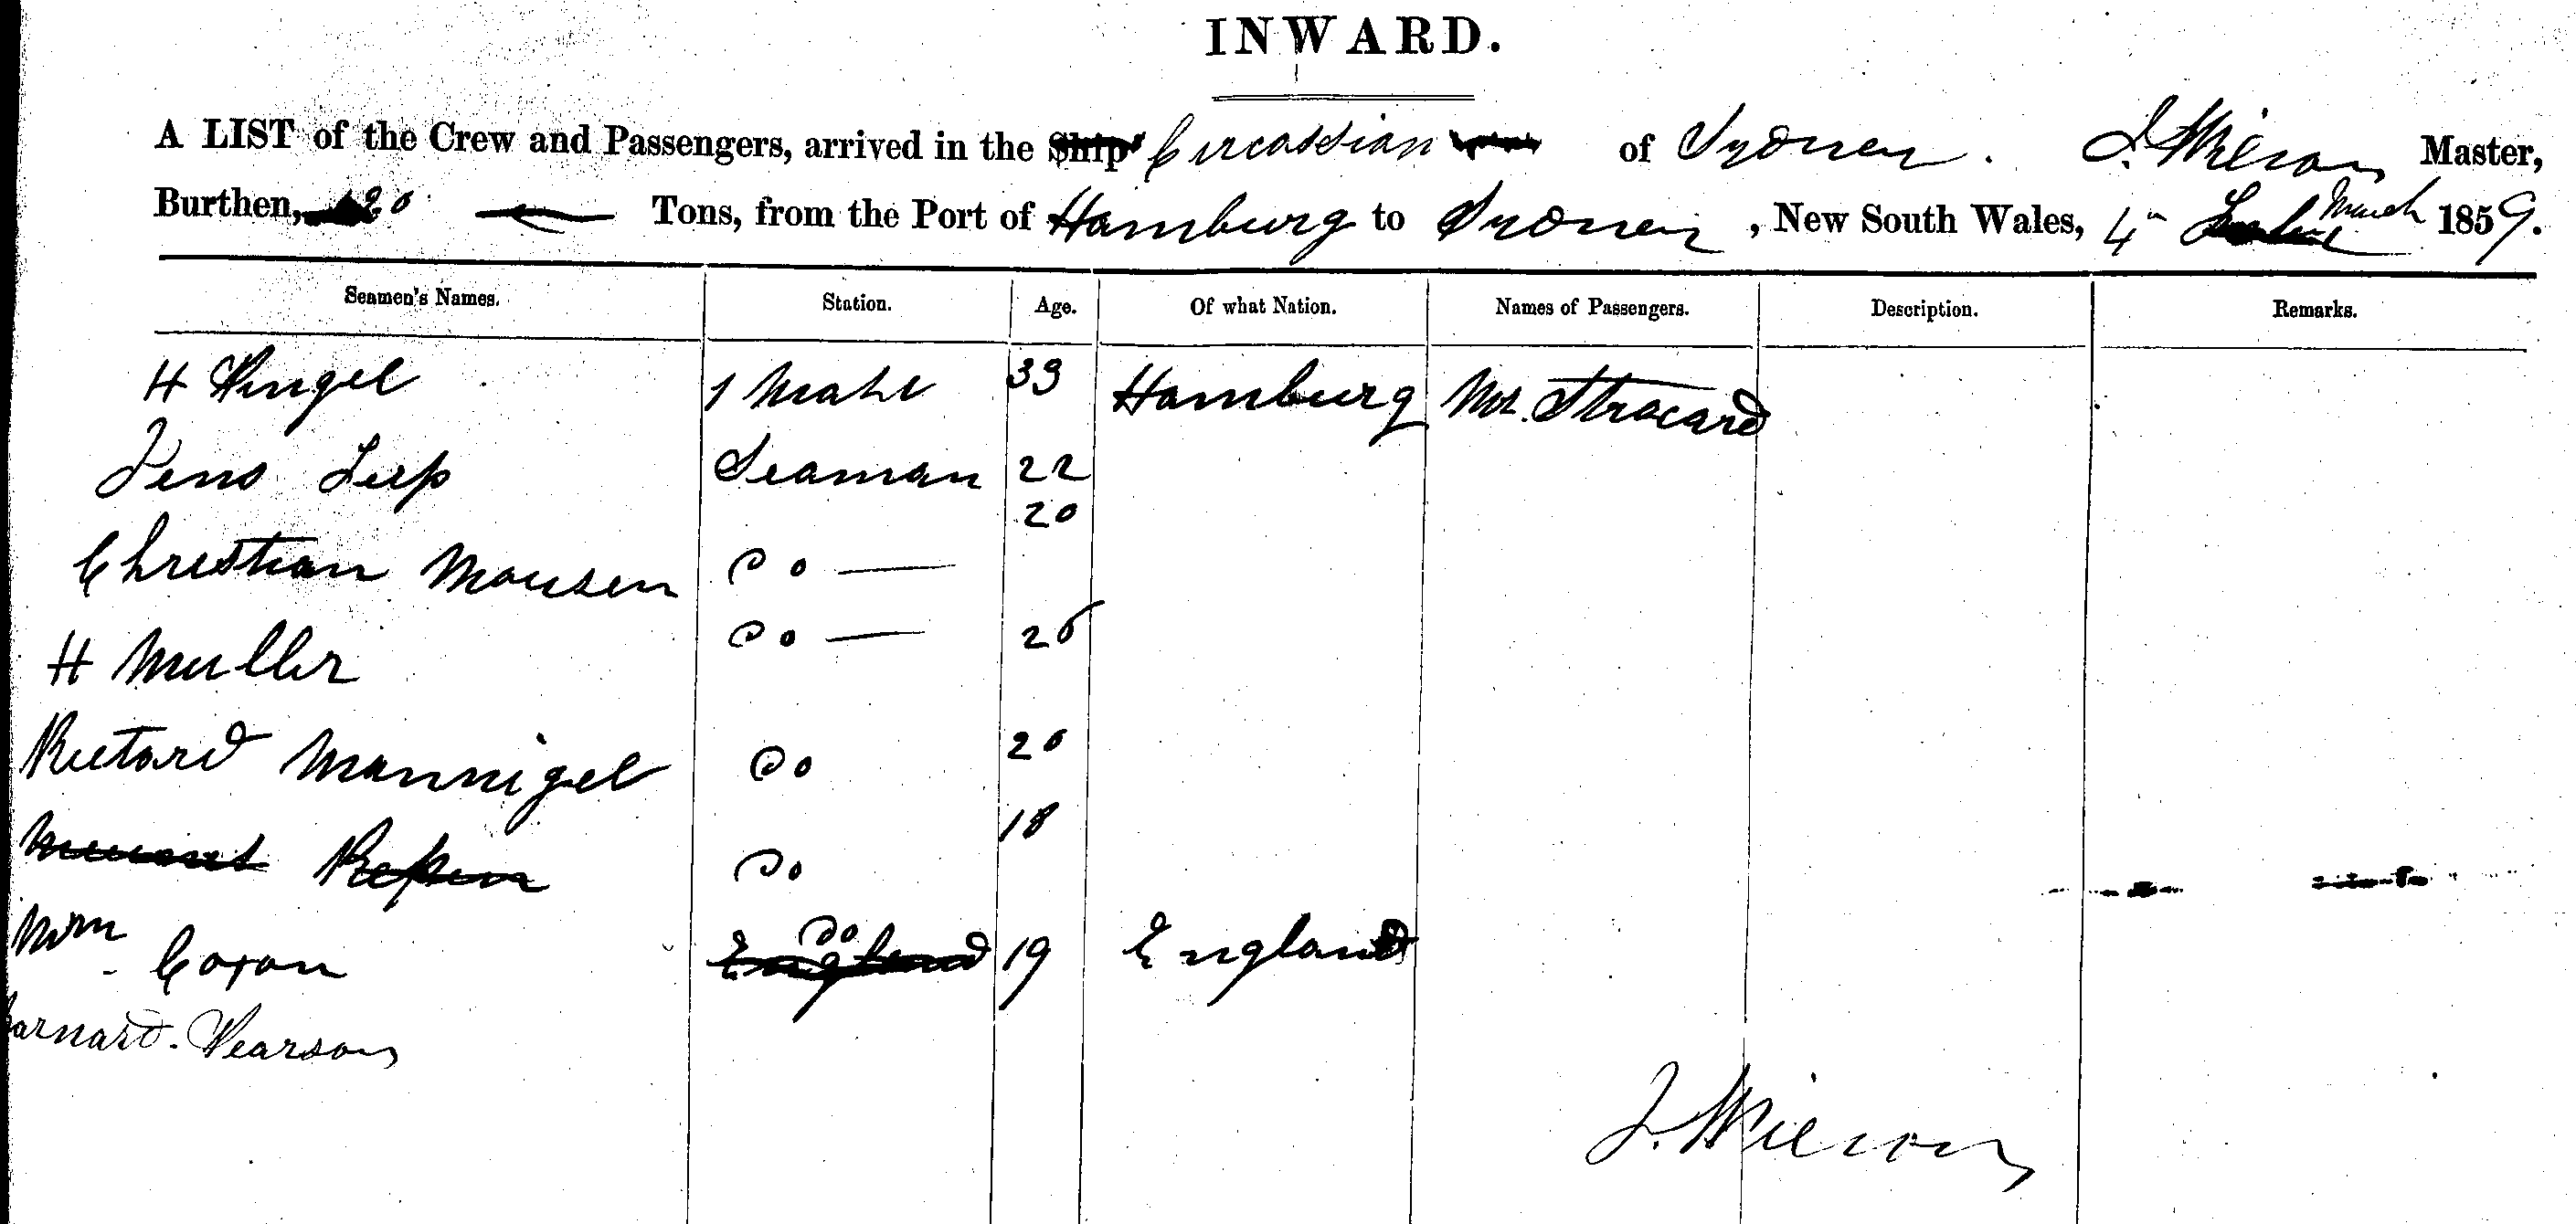 INWARD.
A LIST of the Crew and Passengers, arrived in the Ship Circassian of Sydney. J. Wilson Master,
Burthen, 20 Tons, from the Port of Hamburg to Sydney, New South Wales, 4 March 1859.
Seamen's Names. Station. Age. Of what Nation. Names of Passengers. Description. Remarks.
H 1 Mate 33 Hamburg Mr. Stracard
Jens Seaman 22
Christian Mousen Do 20
H Muller Do 26
Mannigel Do 20
Do 18
Wm Coxon England Do 19 England
Barnard. Pearson
J. Wilson